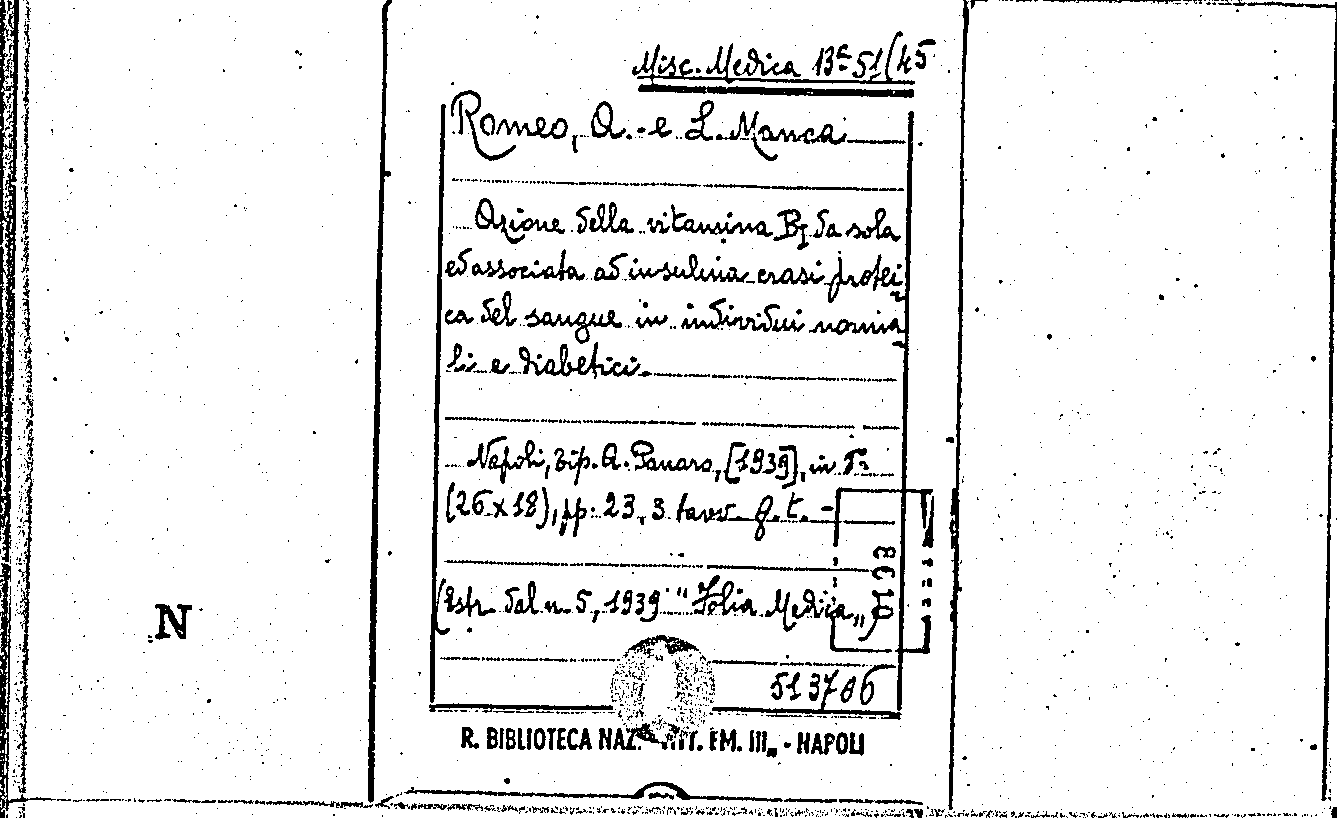 Misc. Medica Bª 51(45
Romeo, A. e L. Manca
Azione della vitamina B₁ da sola
ed associata ad insulina crasi protei
ca del sangue in individui norma
li e diabetici.
Napoli, Tip. A. Panaro, [1939], in 8º
(26 x 18), pp. 23, 3 tavv. f. t. -
(Estr. dal n. 5, 1939 "Folia Medica")
N
513706
R. BIBLIOTECA NAZ. EM. III„ - NAPOLI